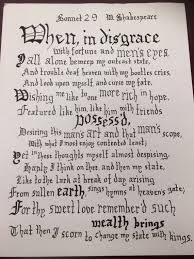 Sonnet 29 W. Shakespeare
When, in disgrace
with fortune and men's eyes,
I all alone beweep my outcast state,
And trouble deaf heaven with my bootless cries
And look upon myself and curse my fate,
Wishing me like to one more rich in hope,
Featured like him, like him with friends
possess'd,
Desiring this man's art and that man's scope,
With what I most enjoy contented least;
Yet in these thoughts myself almost despising,
Haply I think on thee, and then my state,
Like to the lark at break of day arising
From sullen earth, sings hymns at heaven's gate;
For thy sweet love remember'd such
wealth brings
That then I scorn to change my state with kings.